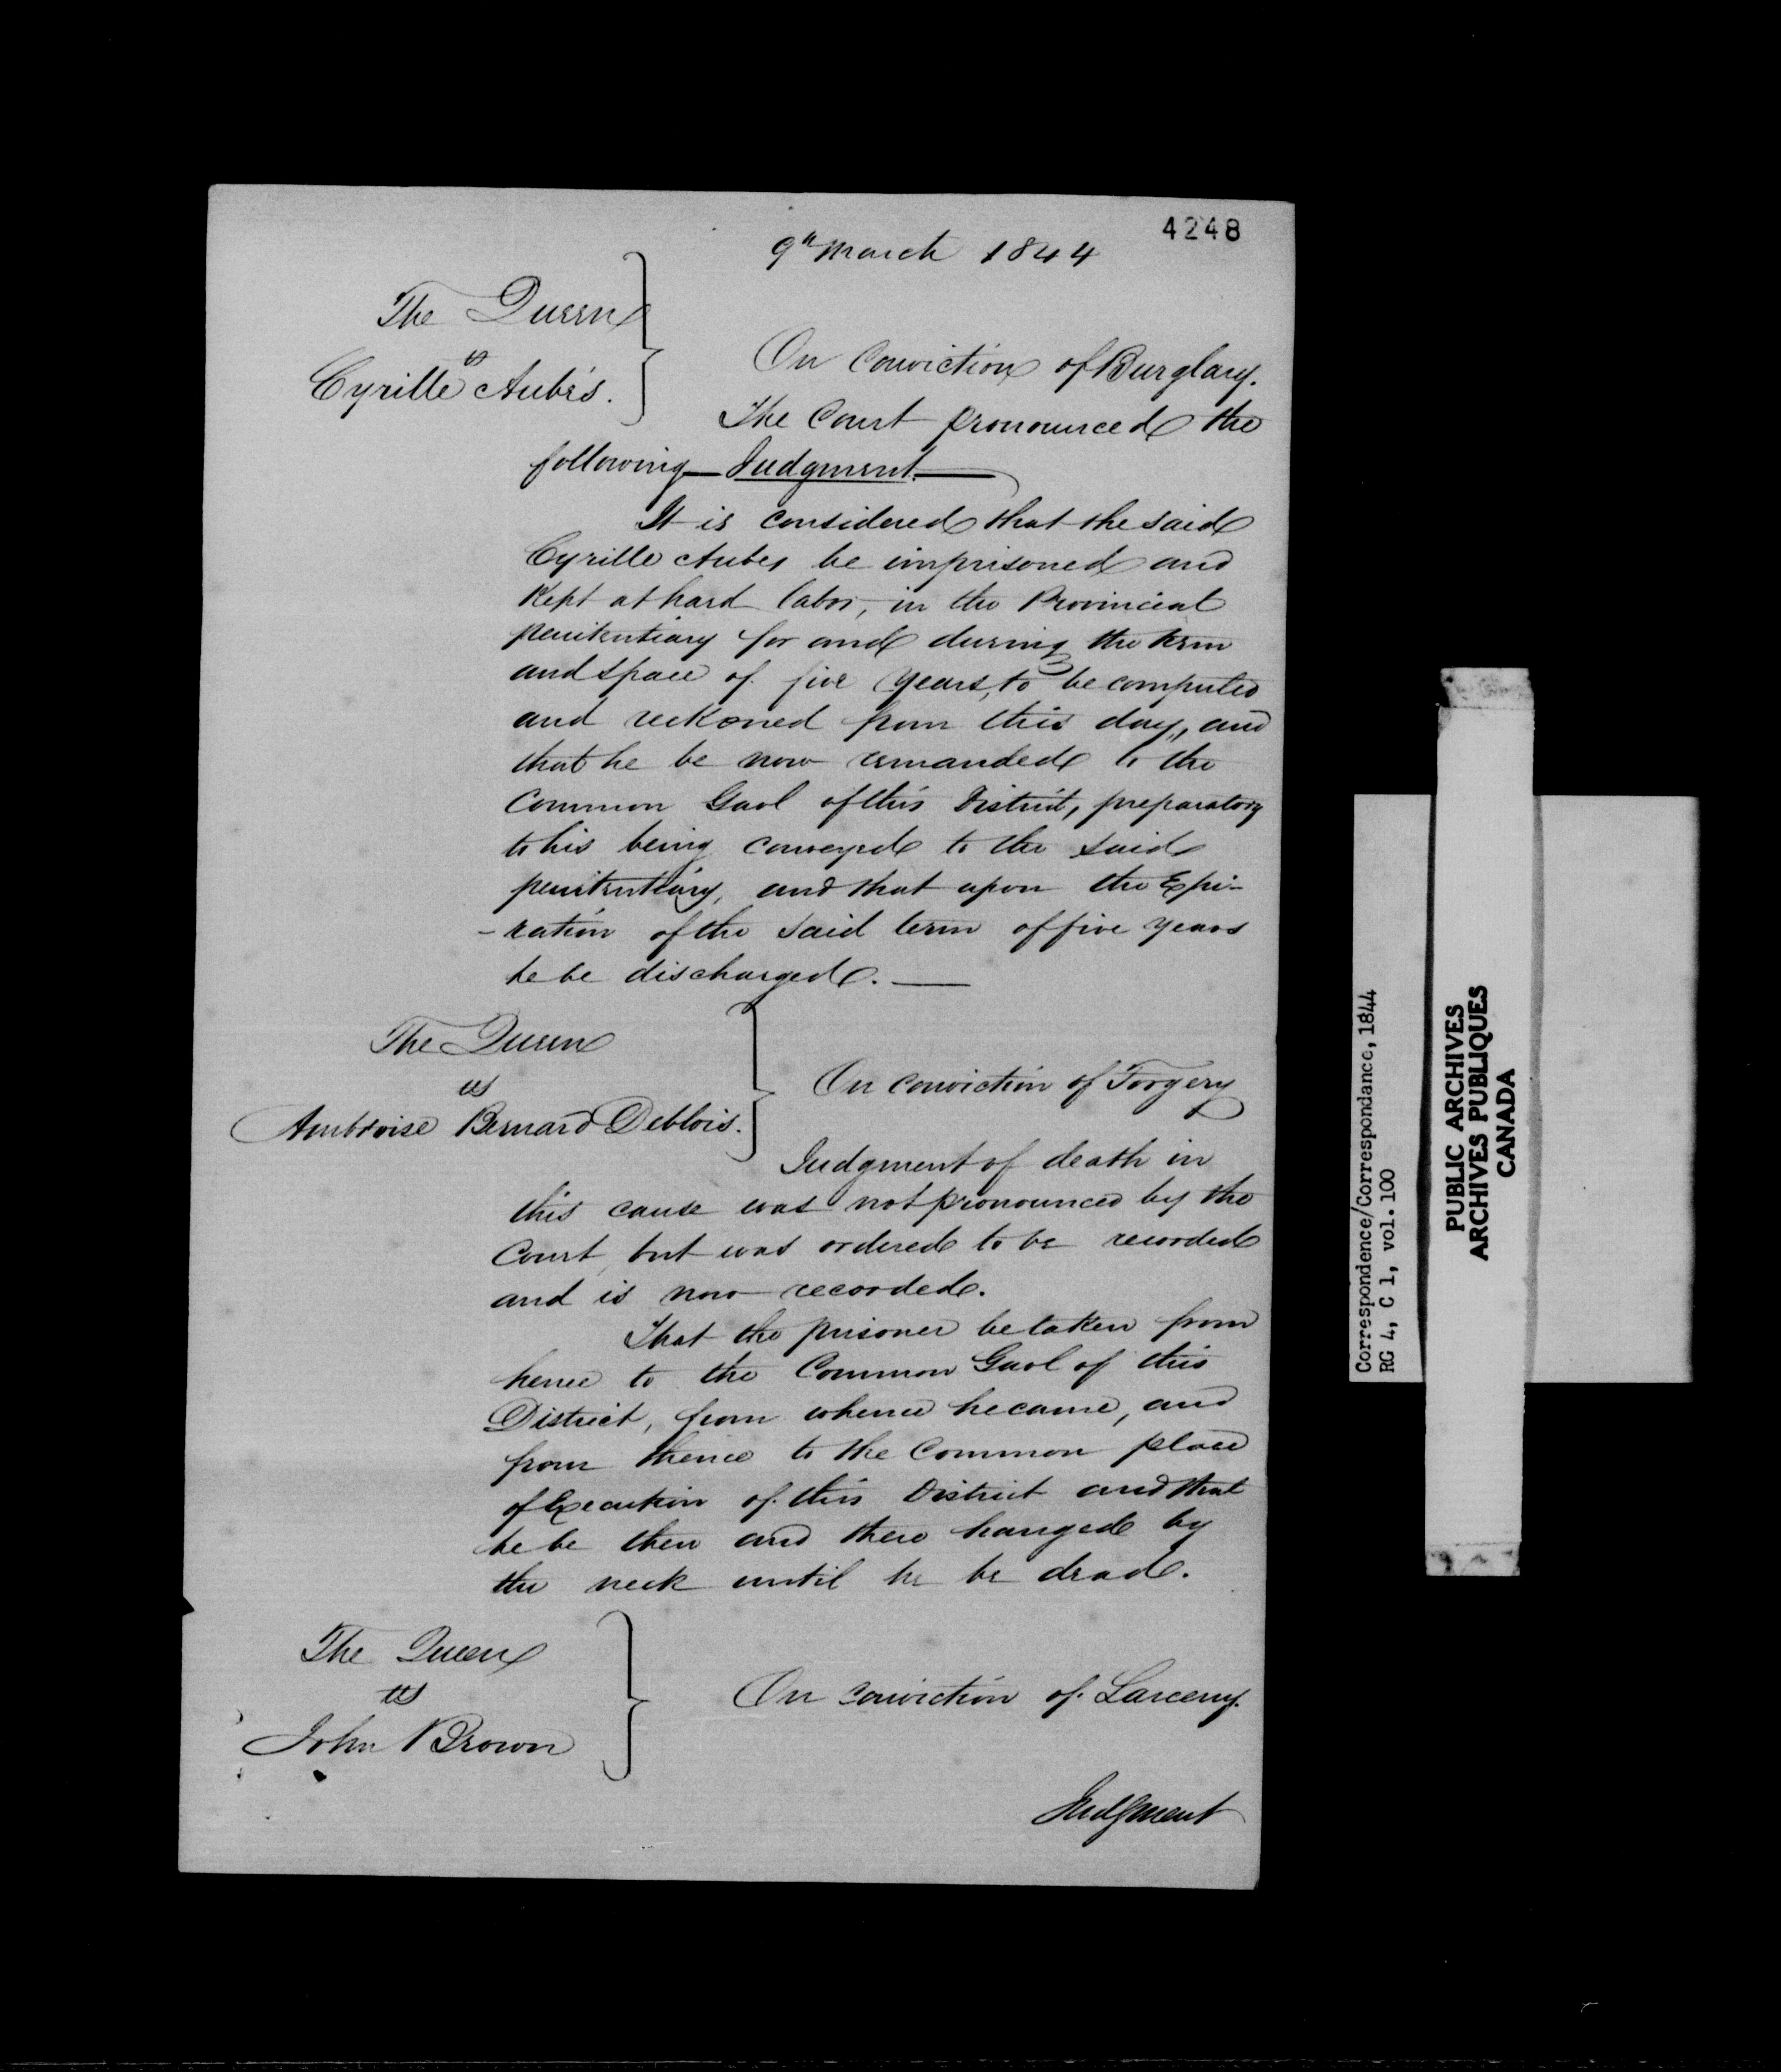 4248
9th March 1844
The Queen
vs
Cyrille Aubés.
On Conviction of Burglary.
The Court pronounced the
following Judgment.
It is considered that the said
Cyrille Aubes be imprisoned and
Kept at hard labor, in the Provincial
penitentiary for and during the term
and space of five years, to be computed
and reckoned from this day, and
that he be now remanded to the
Common Gaol of this District, preparatory
to his being conveyed to the said
penitentiary, and that upon the Expi-
-ration of the said term of five years
he be discharged.
The Queen
vs
Ambroise Bernard Deblois.
On conviction of Forgery
Judgment of death in
this cause was not pronounced by the
Court, but was ordered to be recorded
and is now recorded.
That the prisoner be taken from
hence to the Common Gaol of this
District, from whence he came, and
from thence to the Common place
of Execution of this District and that
he be then and there hanged by
the neck until he be dead.
The Queen
vs
John Brown
On conviction of Larceny.
Judgment
Correspondence/Correspondance, 1844
RG 4, C 1, vol. 100
PUBLIC ARCHIVES
ARCHIVES PUBLIQUES
CANADA